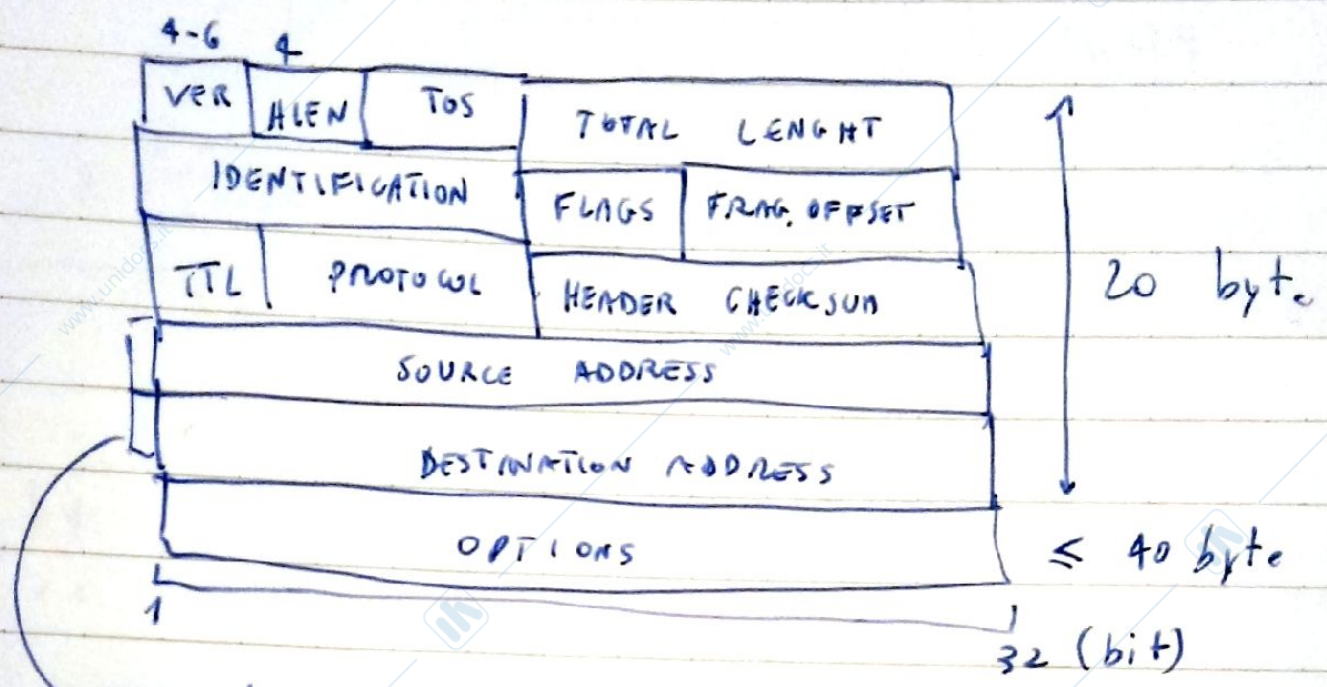 4-6 4
VER HLEN TOS TOTAL LENGHT
IDENTIFICATION FLAGS FRAG. OFFSET
TTL PROTOCOL HEADER CHECKSUM
20 byte
SOURCE ADDRESS
DESTINATION ADDRESS
OPTIONS ≤ 40 byte
1 32 (bit)
www.unidocs.it
www.unidocs.it